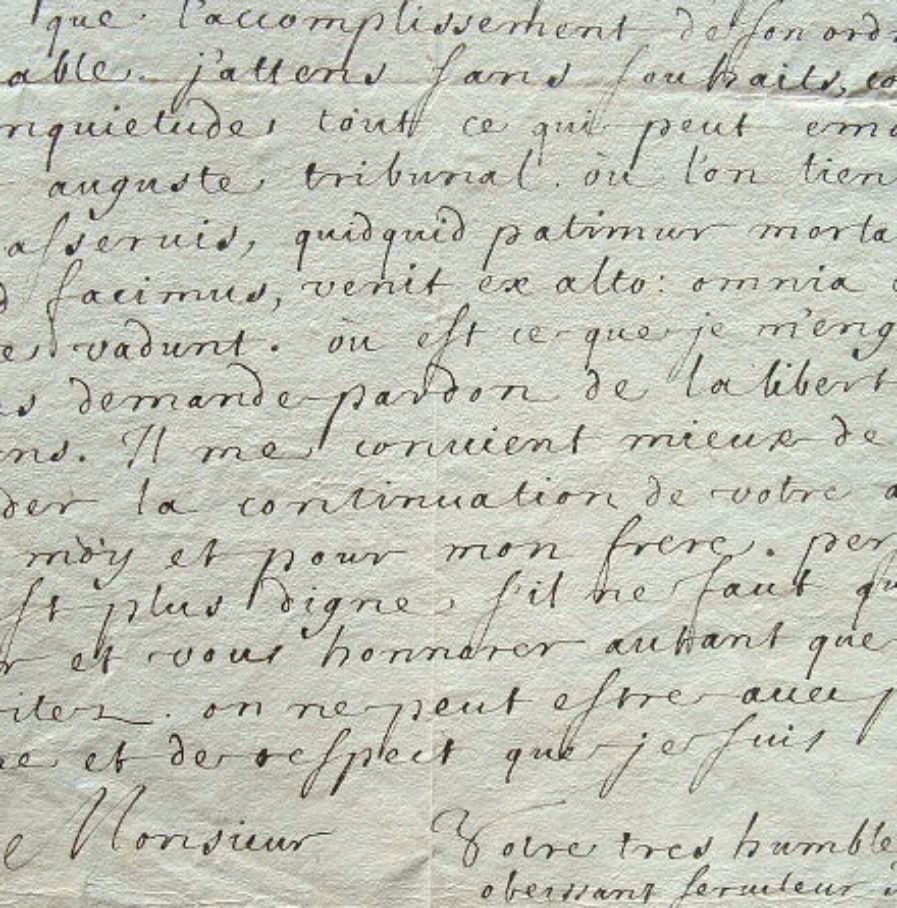 que l'accomplissement de son ord
able. j'attens sans souhaits, co
nquietude, tout ce qui peut ema
auguste tribunal. où l'on tien
asservis, quidquid patimur morta
d facimus, venit ex alto: omnia
e vadunt. où est ce que je m'eng
s demande pardon de la libert
ns. Il me convient mieux de
der la continuation de votre a
moy et pour mon frere. per
st plus digne, s'il ne faut qu
r et vous honnorer autant que
ritez. on ne peut estre avec p
e et de respect que je suis
e Monsieur Votre tres humble
obeissant serviteur